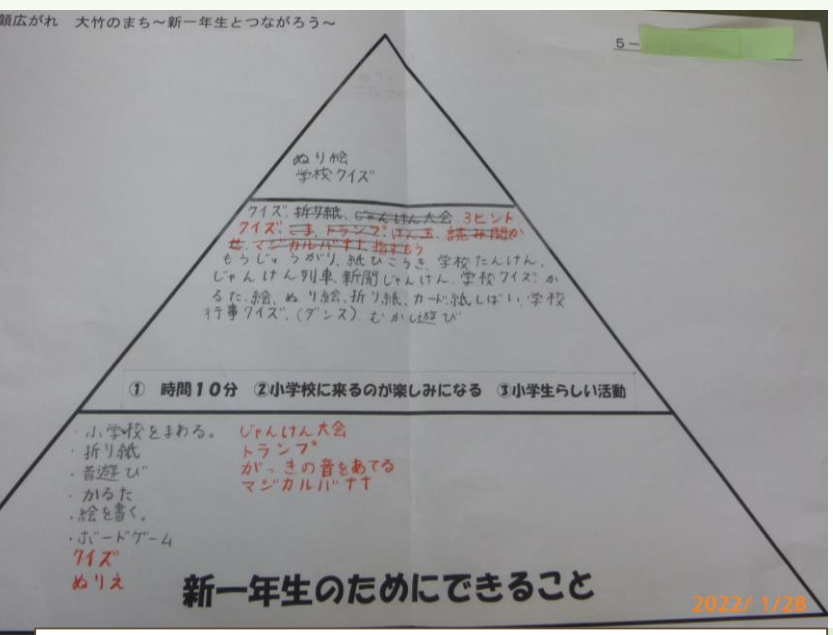 顔広がれ 大竹のまち～新一年生とつながろう～
5－
ぬり絵
学校クイズ
クイズ、折り紙、じゃんけん大会 3ヒント
クイズ、こま、トランプ、けん玉、読み聞か
せ、マジカルバナナ、指すもう
もうじゅうがり、紙ひこうき、学校たんけん、
じゃんけん列車、新聞じゃんけん、学校クイズ、か
るた、絵、ぬり絵、折り紙、カード、紙しばい、学校
行事クイズ、(ダンス)、むかし遊び
① 時間10分 ②小学校に来るのが楽しみになる ③小学生らしい活動
・小学校をまわる。 じゃんけん大会
・折り紙 トランプ
・音遊び がっきの音をあてる
・かるた マジカルバナナ
・絵を書く。
・ボードゲーム
クイズ
ぬりえ
新一年生のためにできること
2022/ 1/28